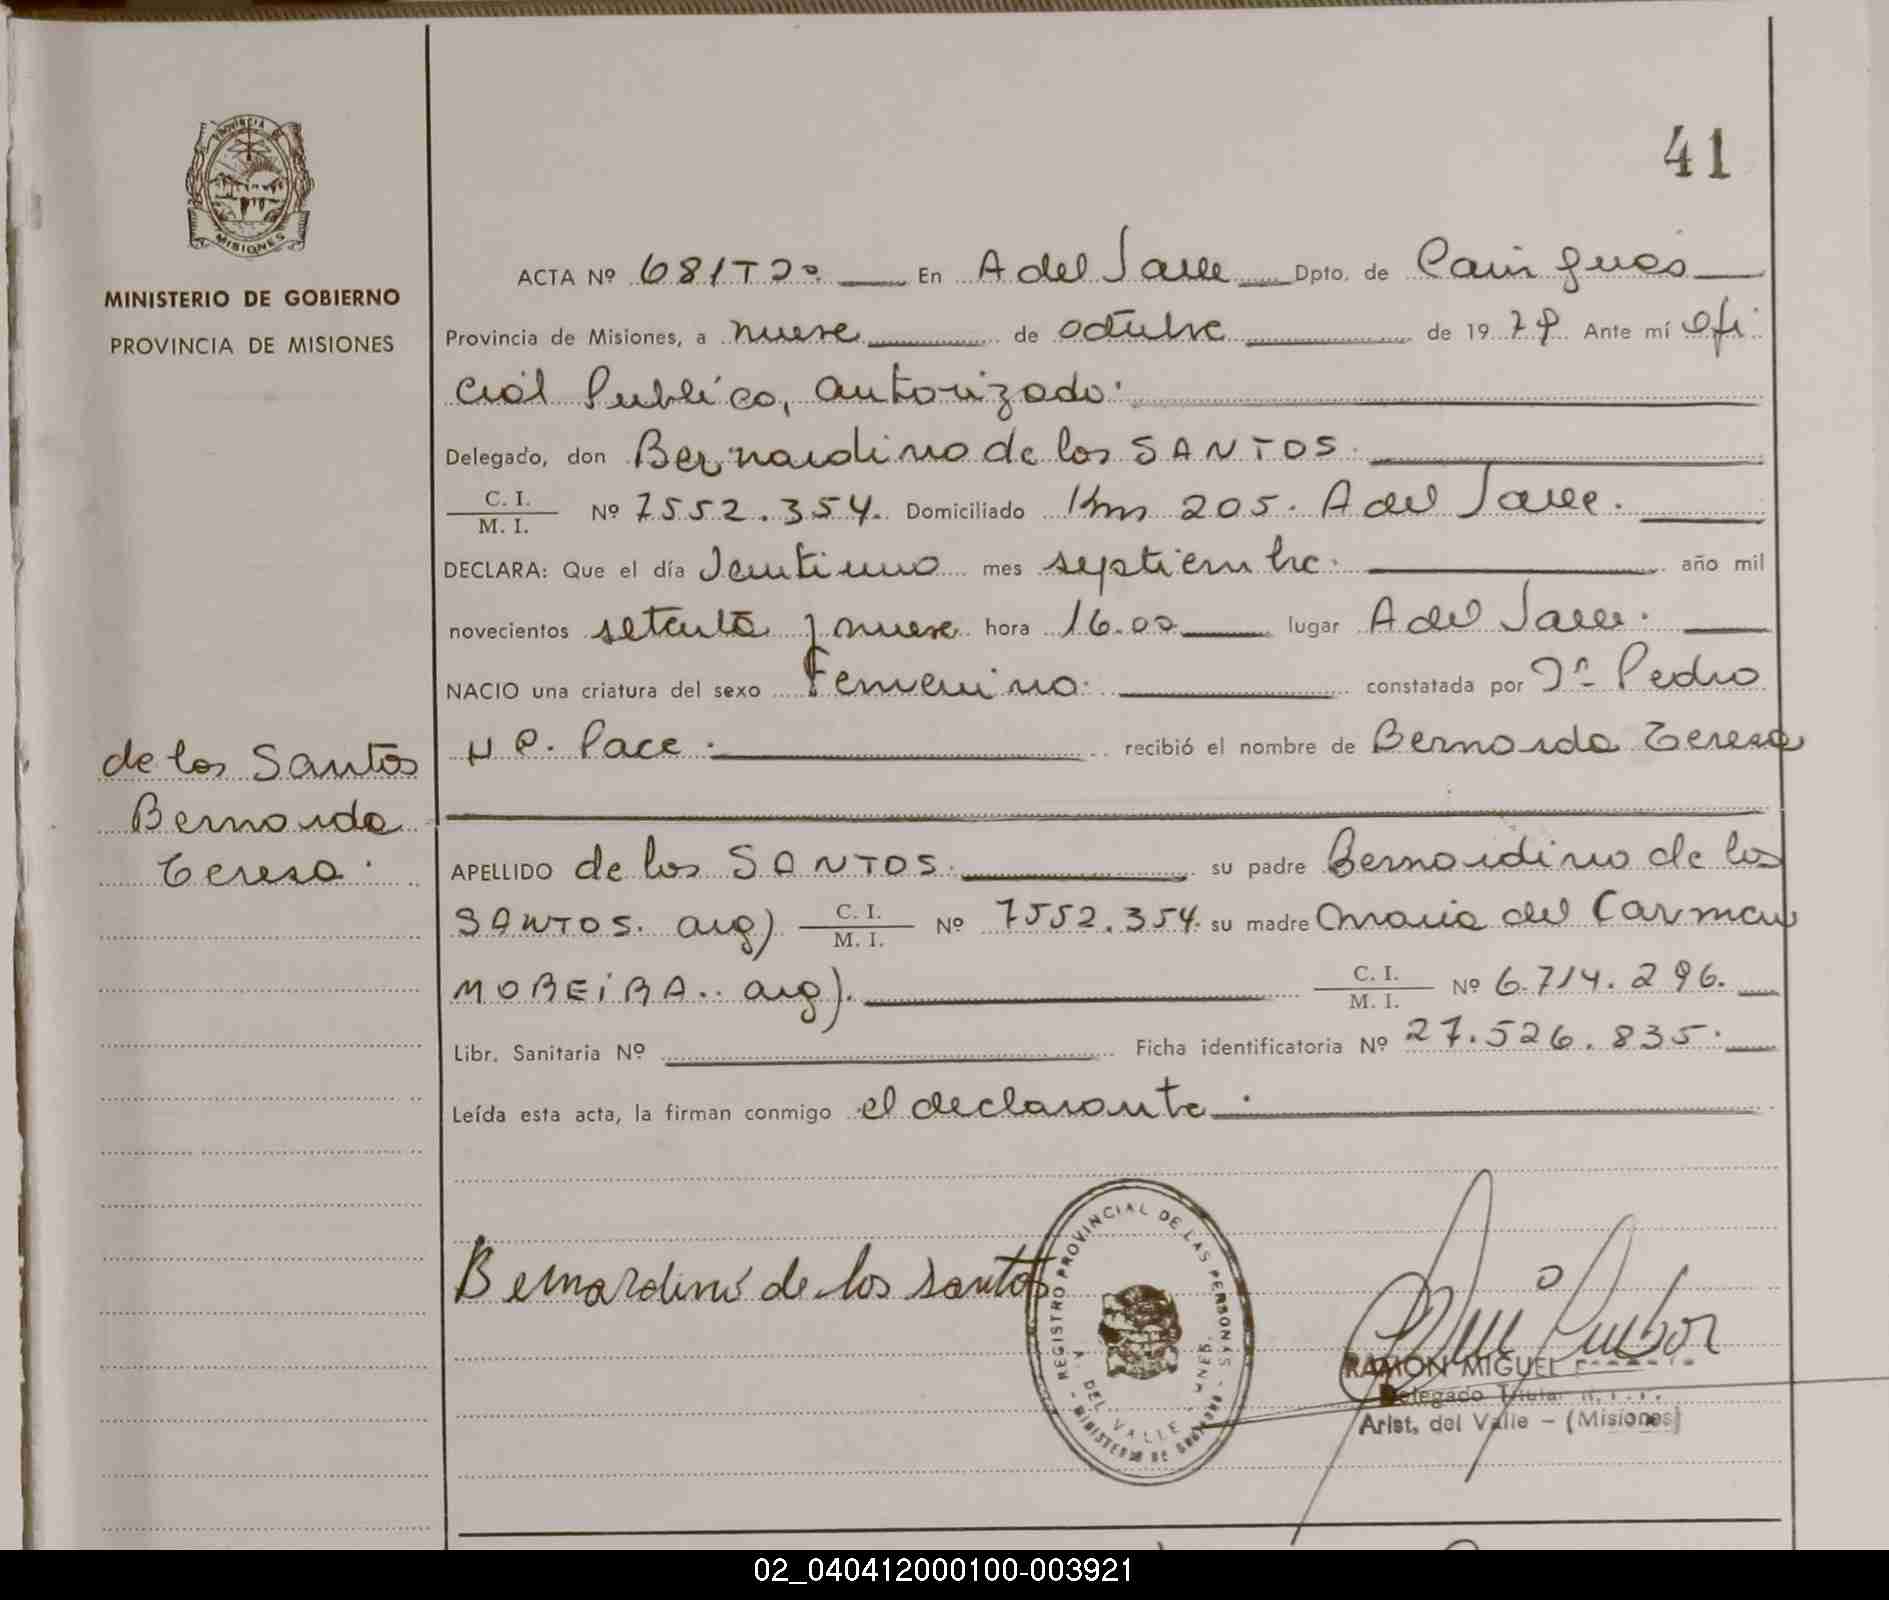 41
PROVINCIA DE
MISIONES
MINISTERIO DE GOBIERNO
PROVINCIA DE MISIONES
ACTA Nº 681 T 2º En A del Valle Dpto. de Cainguas
Provincia de Misiones, a nueve de octubre de 19 79 Ante mí Ofi
cial Publico, autorizado.
Delegado, don Bernardino de los SANTOS.
C. I.
M. I. Nº 7552.354. Domiciliado Km 205. A del Valle.
DECLARA: Que el día Veintiuno mes septiembre. año mil
novecientos setenta y nueve hora 16.00 lugar A del Valle.
NACIO una criatura del sexo Femenino. constatada por Dr. Pedro
H P. Pace. recibió el nombre de Bernarda Teresa
de los Santos
Bernarda
Teresa.
APELLIDO de los SANTOS. su padre Bernardino de los
SANTOS. arg) C. I.
M. I. Nº 7552.354. su madre Maria del Carmen
MOREiRA.. arg). C. I.
M. I. Nº 6.714.296.
Libr. Sanitaria Nº Ficha identificatoria Nº 27.526.835.
Leída esta acta, la firman conmigo el declarante.
Bernardino de los santos
REGISTRO PROVINCIAL DE LAS PERSONAS
A. DEL VALLE
MINISTERIO DE GOBIERNO
RAMON MIGUEL
Delegado Titular
Arist. del Valle - (Misiones)
02_040412000100-003921